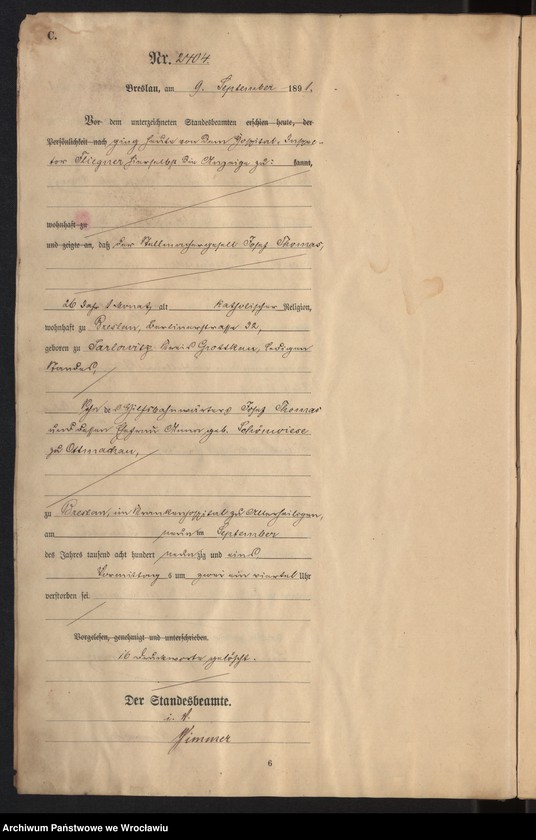 C.
Nr. 2404.
Breslau, am 9. September 1891.
Vor dem unterzeichneten Standesbeamten erschien heute, der
Persönlichkeit nach ging heute von dem Hospital-Inspec-
tor Fliegner hierselbst die Anzeige zu: kannt,
wohnhaft zu
und zeigte an, daß der Stellmachergesell Josef Thomas,
26 Jahr 1 Monat alt katholischer Religion,
wohnhaft zu Breslau, Berlinerstraße 32,
geboren zu Tarlowitz Kreis Grottkau, ledigen
Standes,
Sohn des Hülfsbahnwärters Josef Thomas
und dessen Ehefrau Anna geb. Schönwiese
zu Ottmachau,
zu Breslau, im Krankenhospital zu Allerheiligen,
am neunten September
des Jahres tausend acht hundert neunzig und eins
Vormittag s um zwei ein viertel Uhr
verstorben sei.
Vorgelesen, genehmigt und unterschrieben.
16 Druckworte gelöscht.
Der Standesbeamte.
i. V.
Wimmer
6
Archiwum Państwowe we Wrocławiu